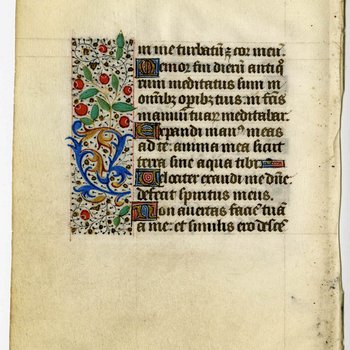 in me turbatũ ẽ cor meũ.
Memor fui dierũ antiqͦ
rum meditatus sum in
om̃ibꝫ opibꝫ tuis: in fc̃is
manuũ tuaꝝ meditabar.
Expandi manꝰ meas
ad te: anima mea sicut
terra sine aqua tibi
Velociter exaudi me dñe:
defecit spiritus meus.
Non auertas faciẽ tuã
a me: et similis ero desce